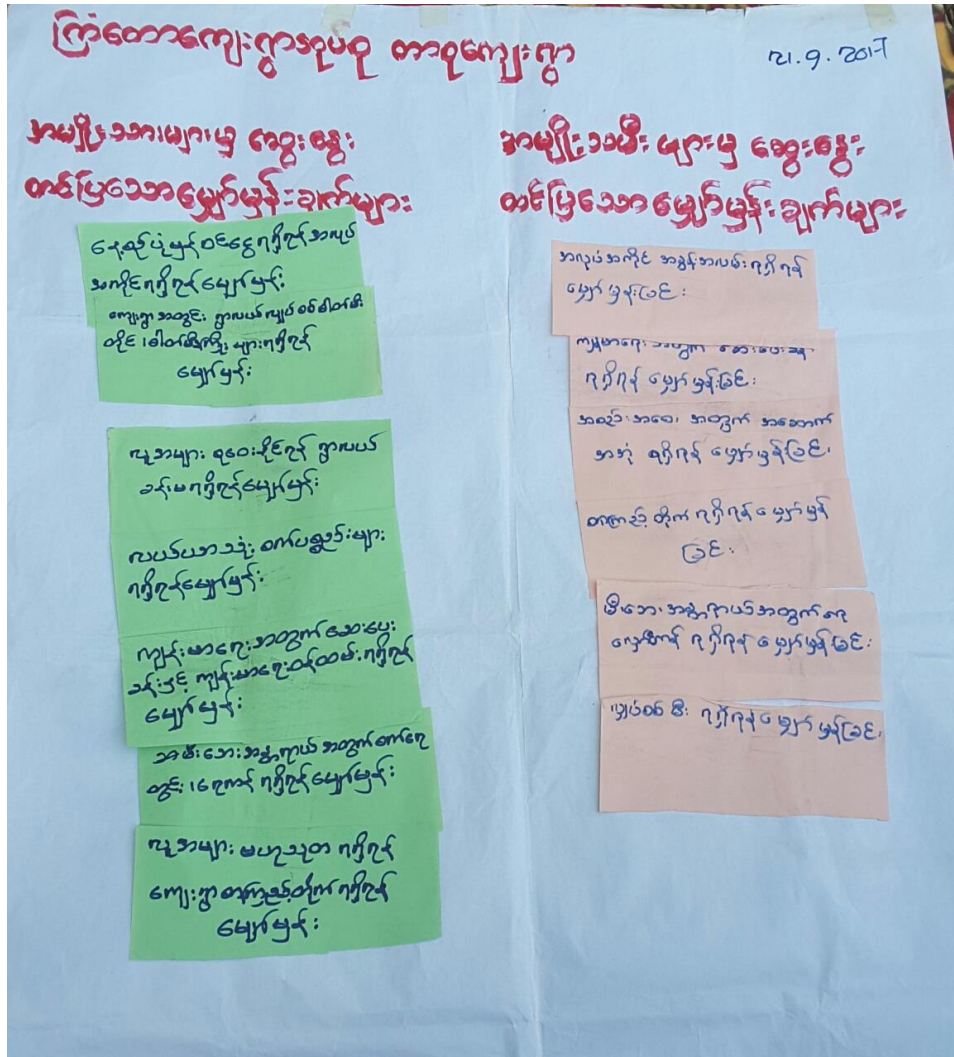 ကြံတောကျေးရွာအုပ်စု တာဝကျေးရွာ
21.9.2017
အမျိုးသားများမှ ဆွေးနွေး
တင်ပြသောမျှော်မှန်းချက်များ
နေ့စဉ်ပုံမှန်ဝင်ငွေရရှိရန်အလုပ်
အကိုင်ရရှိရန်မျှော်မှန်း
ကျေးရွာအတွင်း ရွာလယ်လျှပ်စစ်ဓါတ်မီး
တိုင်၊ဓါတ်မီးကြိုးများရရှိရန်
မျှော်မှန်း
လူထုများ စုဝေးနိုင်ရန် ရွာလယ်
ခန်းမရရှိရန်မျှော်မှန်း
လယ်ယာသုံး စက်ပစ္စည်းများ
ရရှိရန်မျှော်မှန်း
ကျန်းမာရေးအတွက်ဆေးပေး
ခန်းနှင့် ကျန်းမာရေးဝန်ထမ်းရရှိရန်
မျှော်မှန်း
အမီးဘေးအန္တရာယ်အတွက်စက်ရေ
တွင်း၊ရေကန် ရရှိရန်မျှော်မှန်း
လူထုများ ဗဟုသုတ ရရှိရန်
ကျေးရွာစာကြည့်တိုက်ရရှိရန်
မျှော်မှန်း
အမျိုးသမီးများမှ ဆွေးနွေး
တင်ပြသောမျှော်မှန်းချက်များ
အလုပ်အကိုင် အခွန်အလမ်းရရှိရန်
မျှော်မှန်းခြင်း
ကျန်းမာရေးအတွက် ဆေးပေးခန်း
ရရှိရန် မျှော်မှန်းခြင်း
အစည်းအဝေး အတွက် အဆောက်
အအုံ ရရှိရန် မျှော်မှန်းခြင်း
စာကြည့်တိုက် ရရှိရန်မျှော်မှန်
ခြင်း
မီးဘေးအန္တရာယ်အတွက် ရေ
လှောင်ကန် ရရှိရန် မျှော်မှန်ခြင်း
လျှပ်စစ်မီး ရရှိရန်မျှော်မှန်ခြင်း